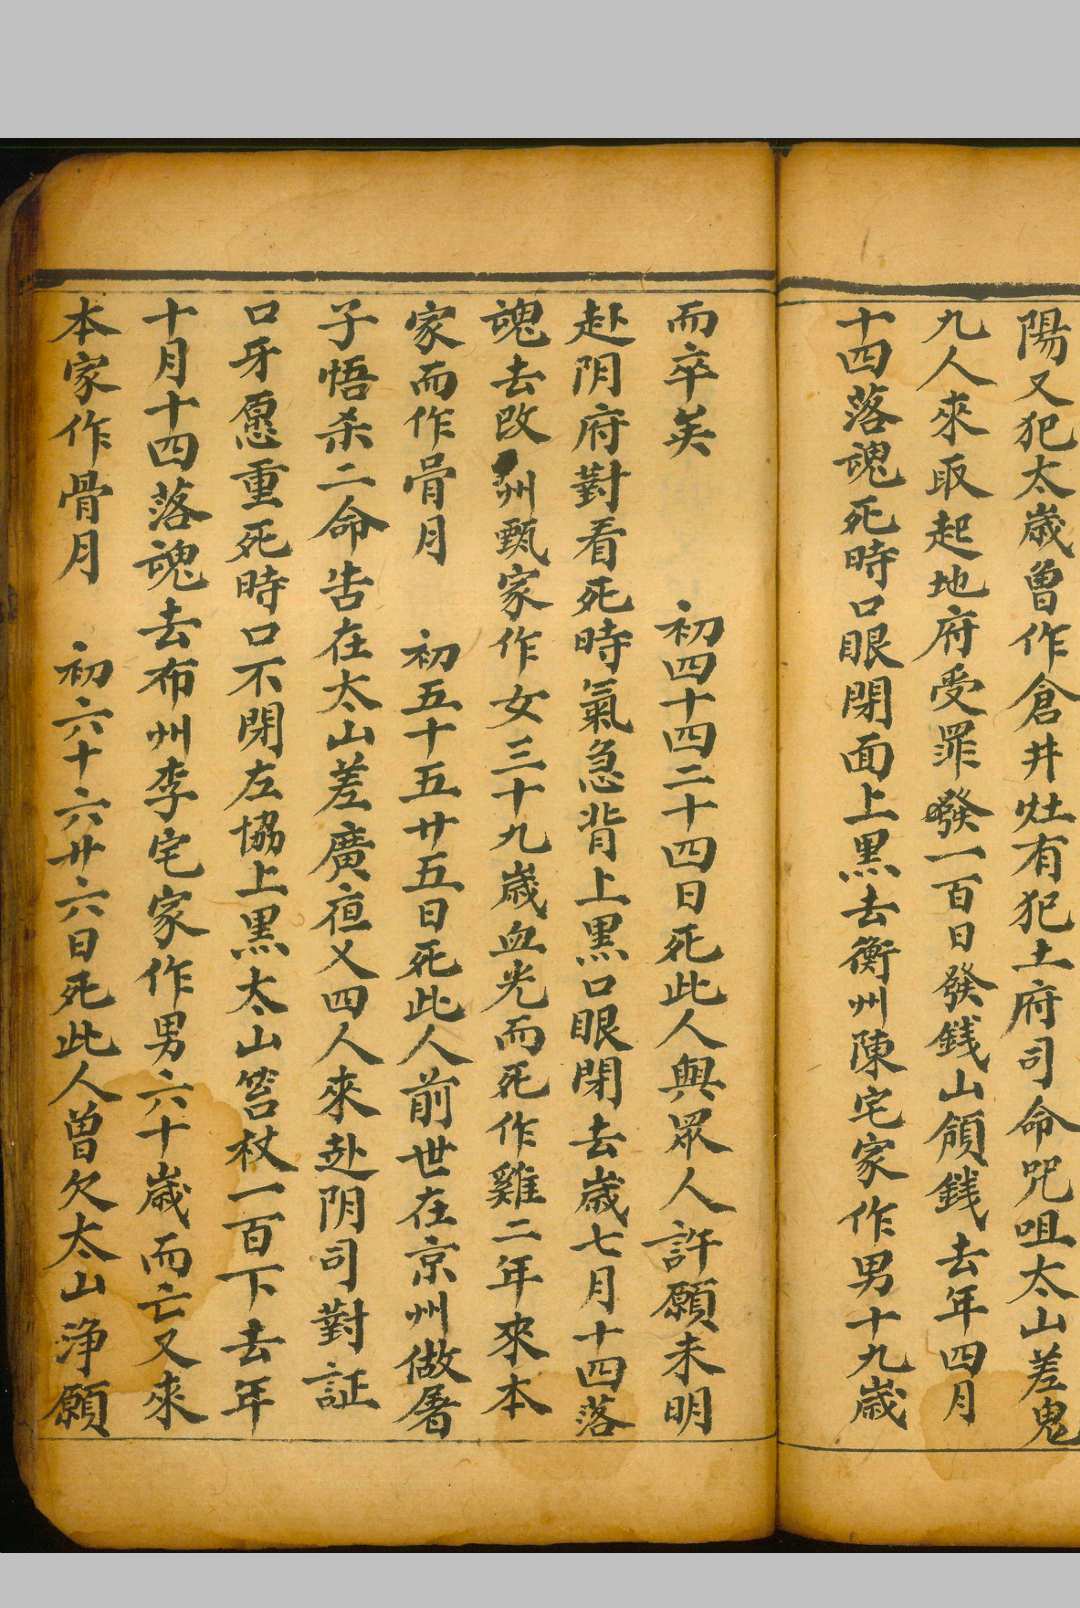 陽又犯太歲曾作倉井灶有犯土府司命咒咀太山差鬼
九人來取起地府受罪發一百日發銭山領銭去年四月
十四落魂死時口眼閉面上黑去衡州陳宅家作男十九歲
而卒矣　初四十四二十四日死此人與眾人許願未明
赴阴府對看死時氣急背上黑口眼閉去歲七月十四落
魂去改州甄家作女三十九歲血光而死作雞二年來本
家而作骨月　初五十五廿五日死此人前世在京州做屠
子悟杀二命告在太山差廣夜乂四人來赴阴司對証
口牙愿重死時口不閉左協上黑太山笞杖一百下去年
十月十四落魂去布州李宅家作男六十歲而亡又來
本家作骨月　初六十六廿六日死此人曾欠太山净願